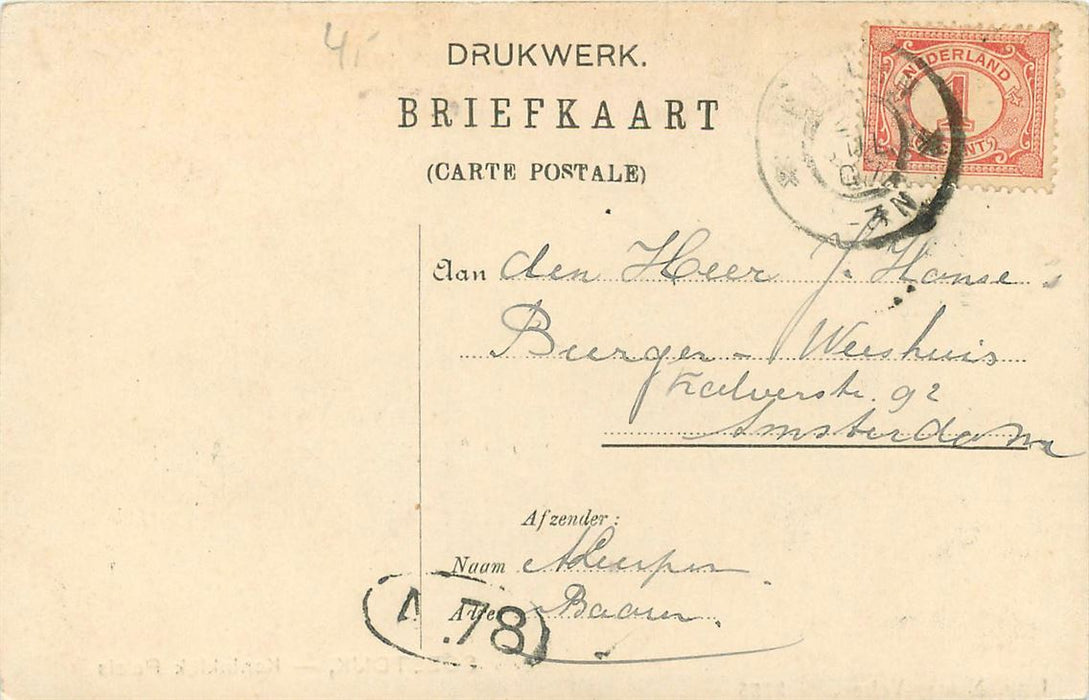 4,-
DRUKWERK.
BRIEFKAART
(CARTE POSTALE)
NEDERLAND
1
CENT
Aan den Heer J. Hanse
Burger-Weeshuis
Kalverstr. 92
Amsterdam
Afzender:
Naam
Adres Baarn.
78